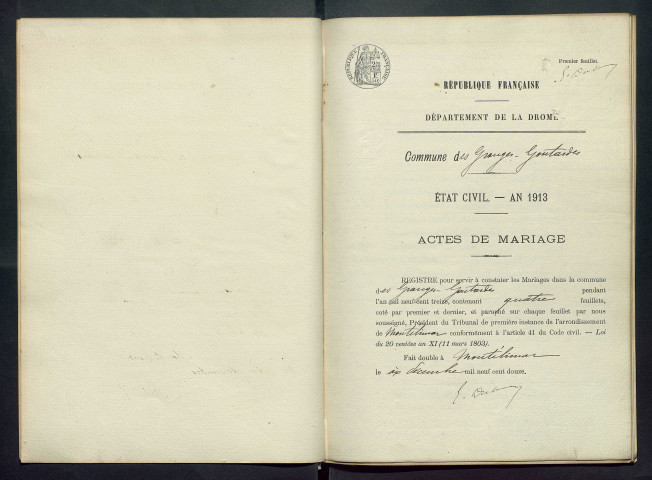 Premier feuillet.
RÉPUBLIQUE FRANÇAISE
RÉPUBLIQUE FRANÇAISE
DÉPARTEMENT DE LA DROME
Commune des Granges-Gontardes
ÉTAT CIVIL. — AN 1913
ACTES DE MARIAGE
REGISTRE pour servir à constater les Mariages dans la commune
des Granges-Gontardes pendant
l'an mil neuf cent treize, contenant quatre feuillets,
coté par premier et dernier, et paraphé sur chaque feuillet par nous
soussigné, Président du Tribunal de première instance de l'arrondissement
de Montélimar conformément à l'article 41 du Code civil. — Loi
du 20 ventôse an XI (11 mars 1803).
Fait double à Montélimar
le six Décembre mil neuf cent douze.